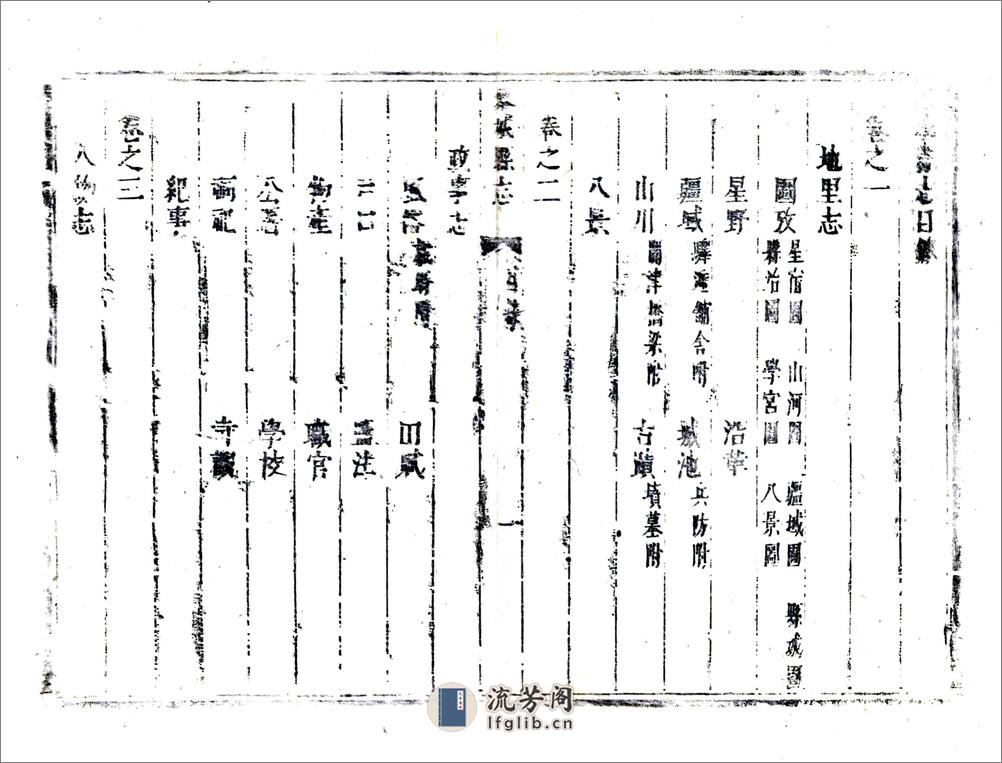 志目錄
卷之一
地里志
圖攷 星宿圖 山河圖 疆域圖 縣城圖
縣治圖 學宮圖 八景圖
星野 沿革
疆域 驛遞鋪舍附 城池 兵防附
山川 關津橋梁附 古蹟 墳墓附
八景
卷之二
城縣志 目錄 一
政事志
田賦
物產 職官
公署 學校
祠祀 寺觀
紀事
卷之三
人物志
流芳阁
lfglib.cn